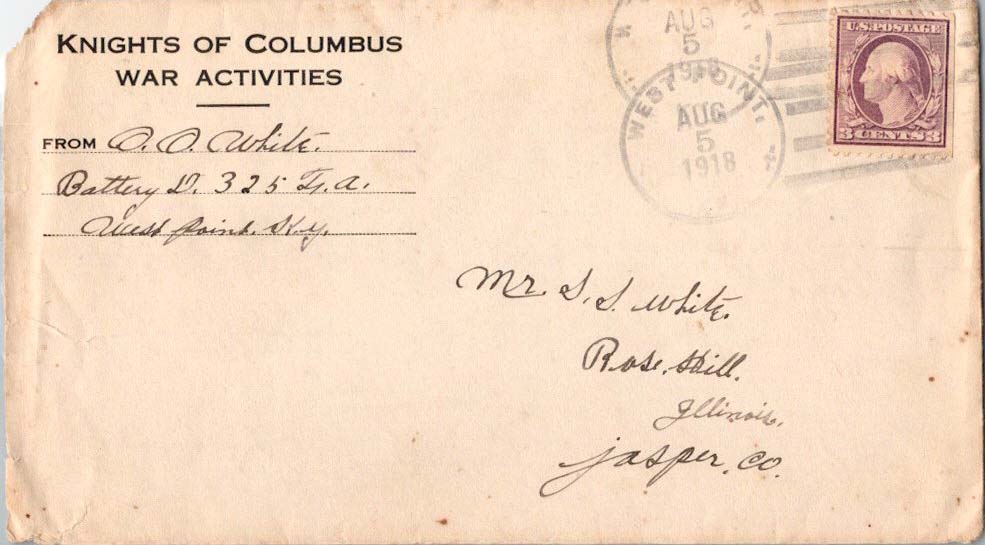 KNIGHTS OF COLUMBUS
WAR ACTIVITIES
FROM O. O. White.
Battery D. 325 F. A.
West Point. Ky.
AUG
5
1918
WEST POINT.
AUG
5
1918
U.S. POSTAGE
3 CENTS 3
Mr. S. S. White.
Rose. Hill.
Illinois.
Jasper. Co.